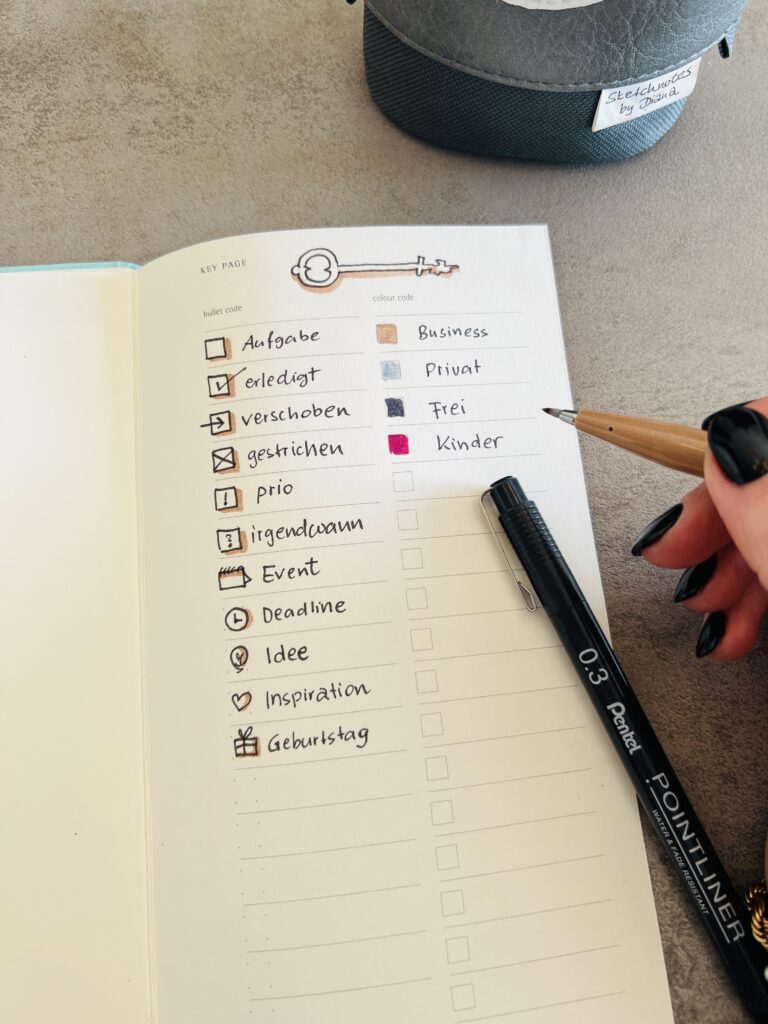 Sketchnotes
by Diana
KEY PAGE
bullet code
Aufgabe
erledigt
verschoben
gestrichen
! prio
? irgendwann
Event
Deadline
Idee
Inspiration
Geburtstag
colour code
Business
Privat
Frei
Kinder
0.3 Pentel POINTLINER
WATER & FADE RESISTANT